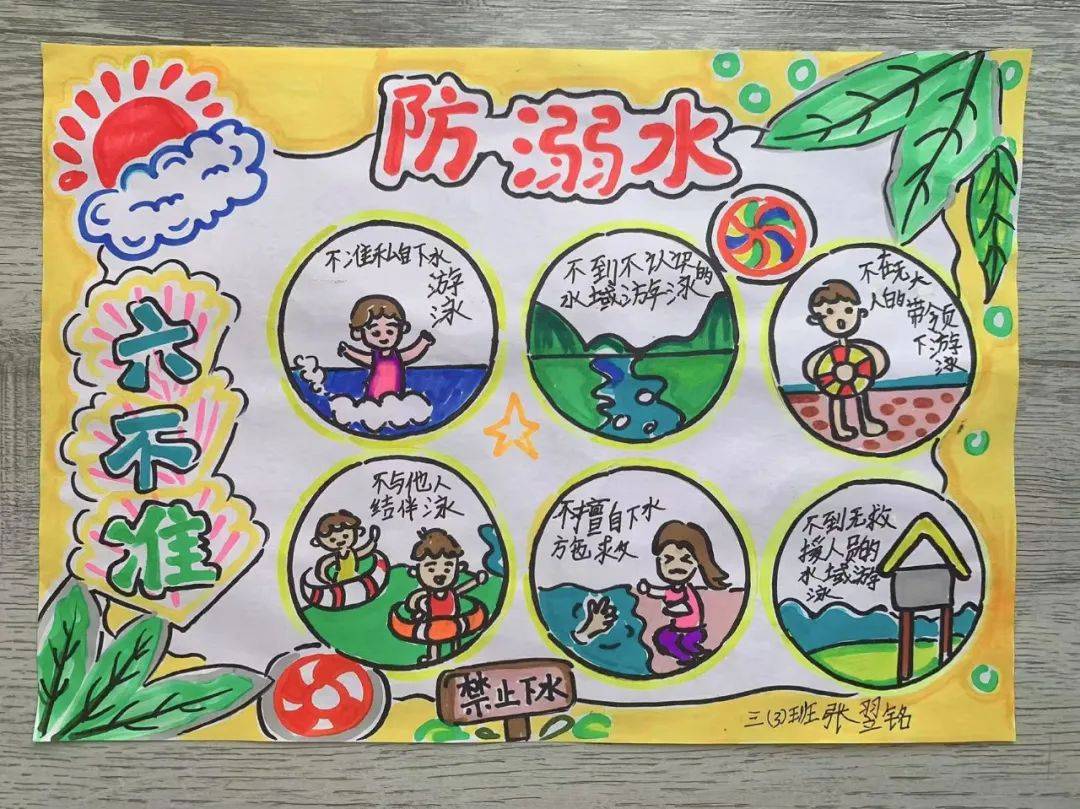 防溺水
六
不
准
不准私自下水
游
泳
不到不认识的
水域游泳
不在无大
人的带领
下游
泳
不与他人
结伴泳
不擅自下水
施救
不到无救
援人员的
水域游
泳
禁止下水
三(3)班张翌铭